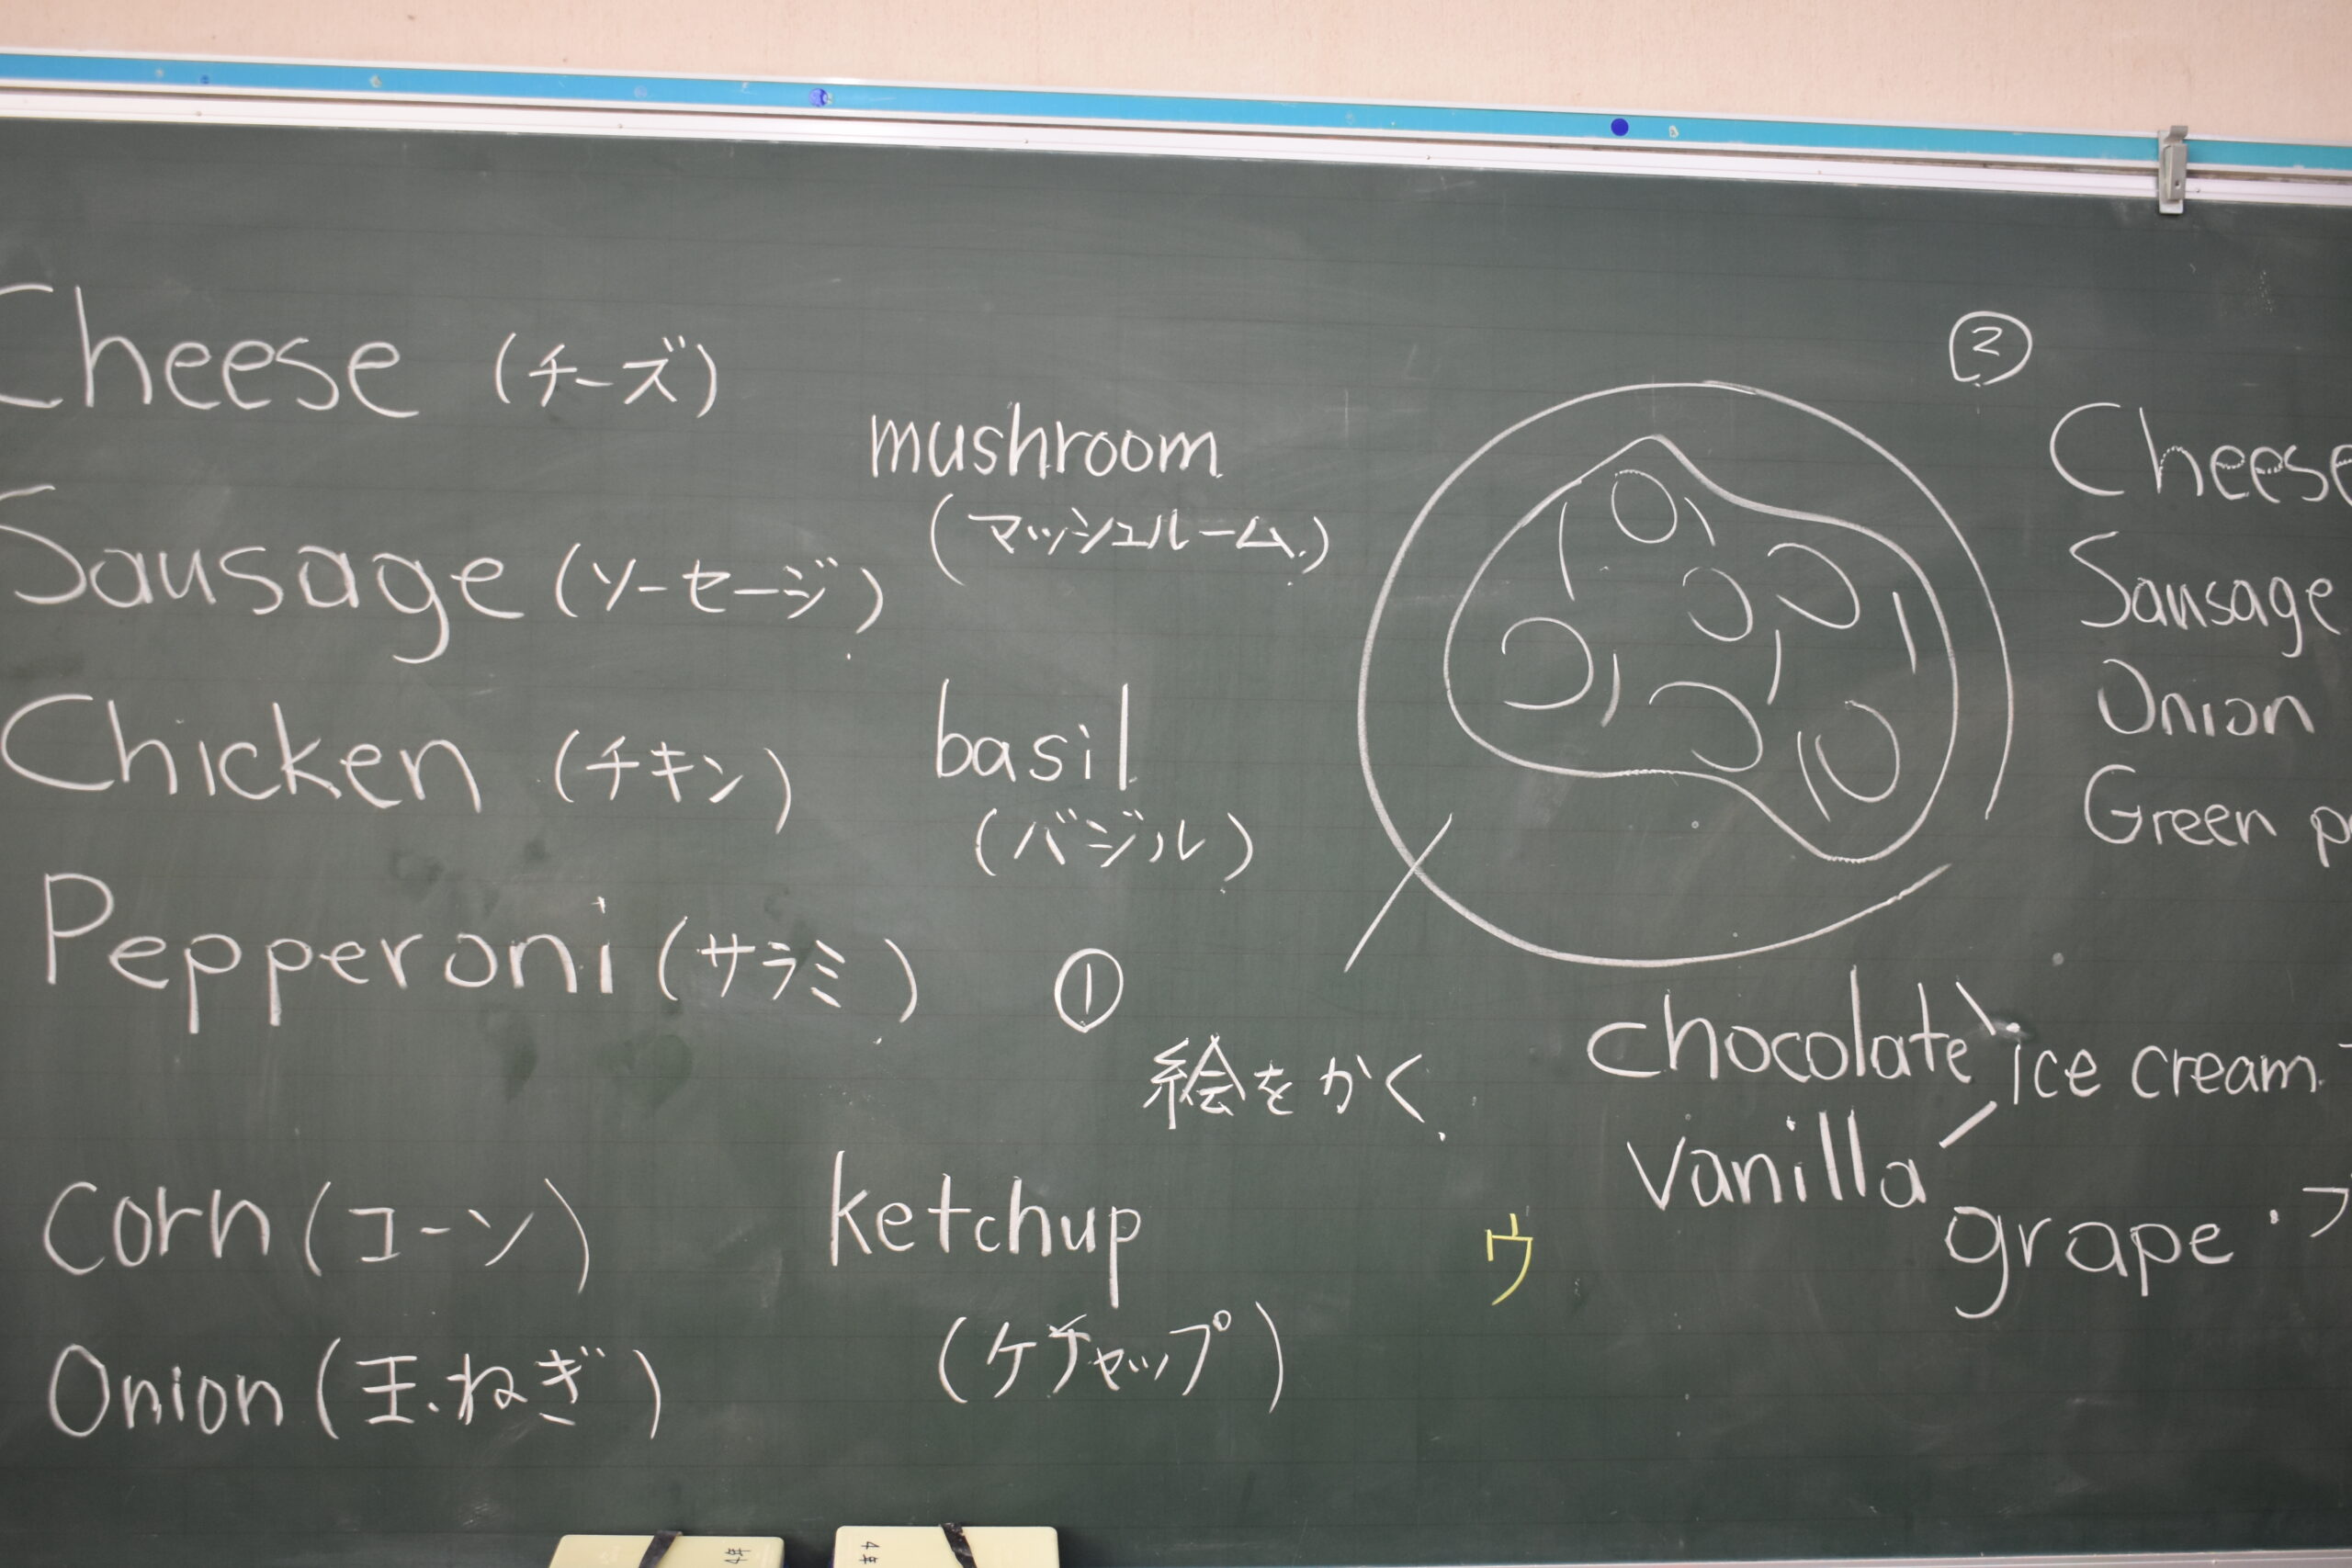 Cheese (チーズ)
Sausage (ソーセージ)
Chicken (チキン)
Pepperoni (サラミ)
Corn (コーン)
Onion (玉ねぎ)
mushroom
(マッシュルーム)
basil
(バジル)
①
絵をかく
ketchup
(ケチャップ)
ウ
②
Cheese
Sausage
Onion
Green
chocolate ice cream
vanilla
grape